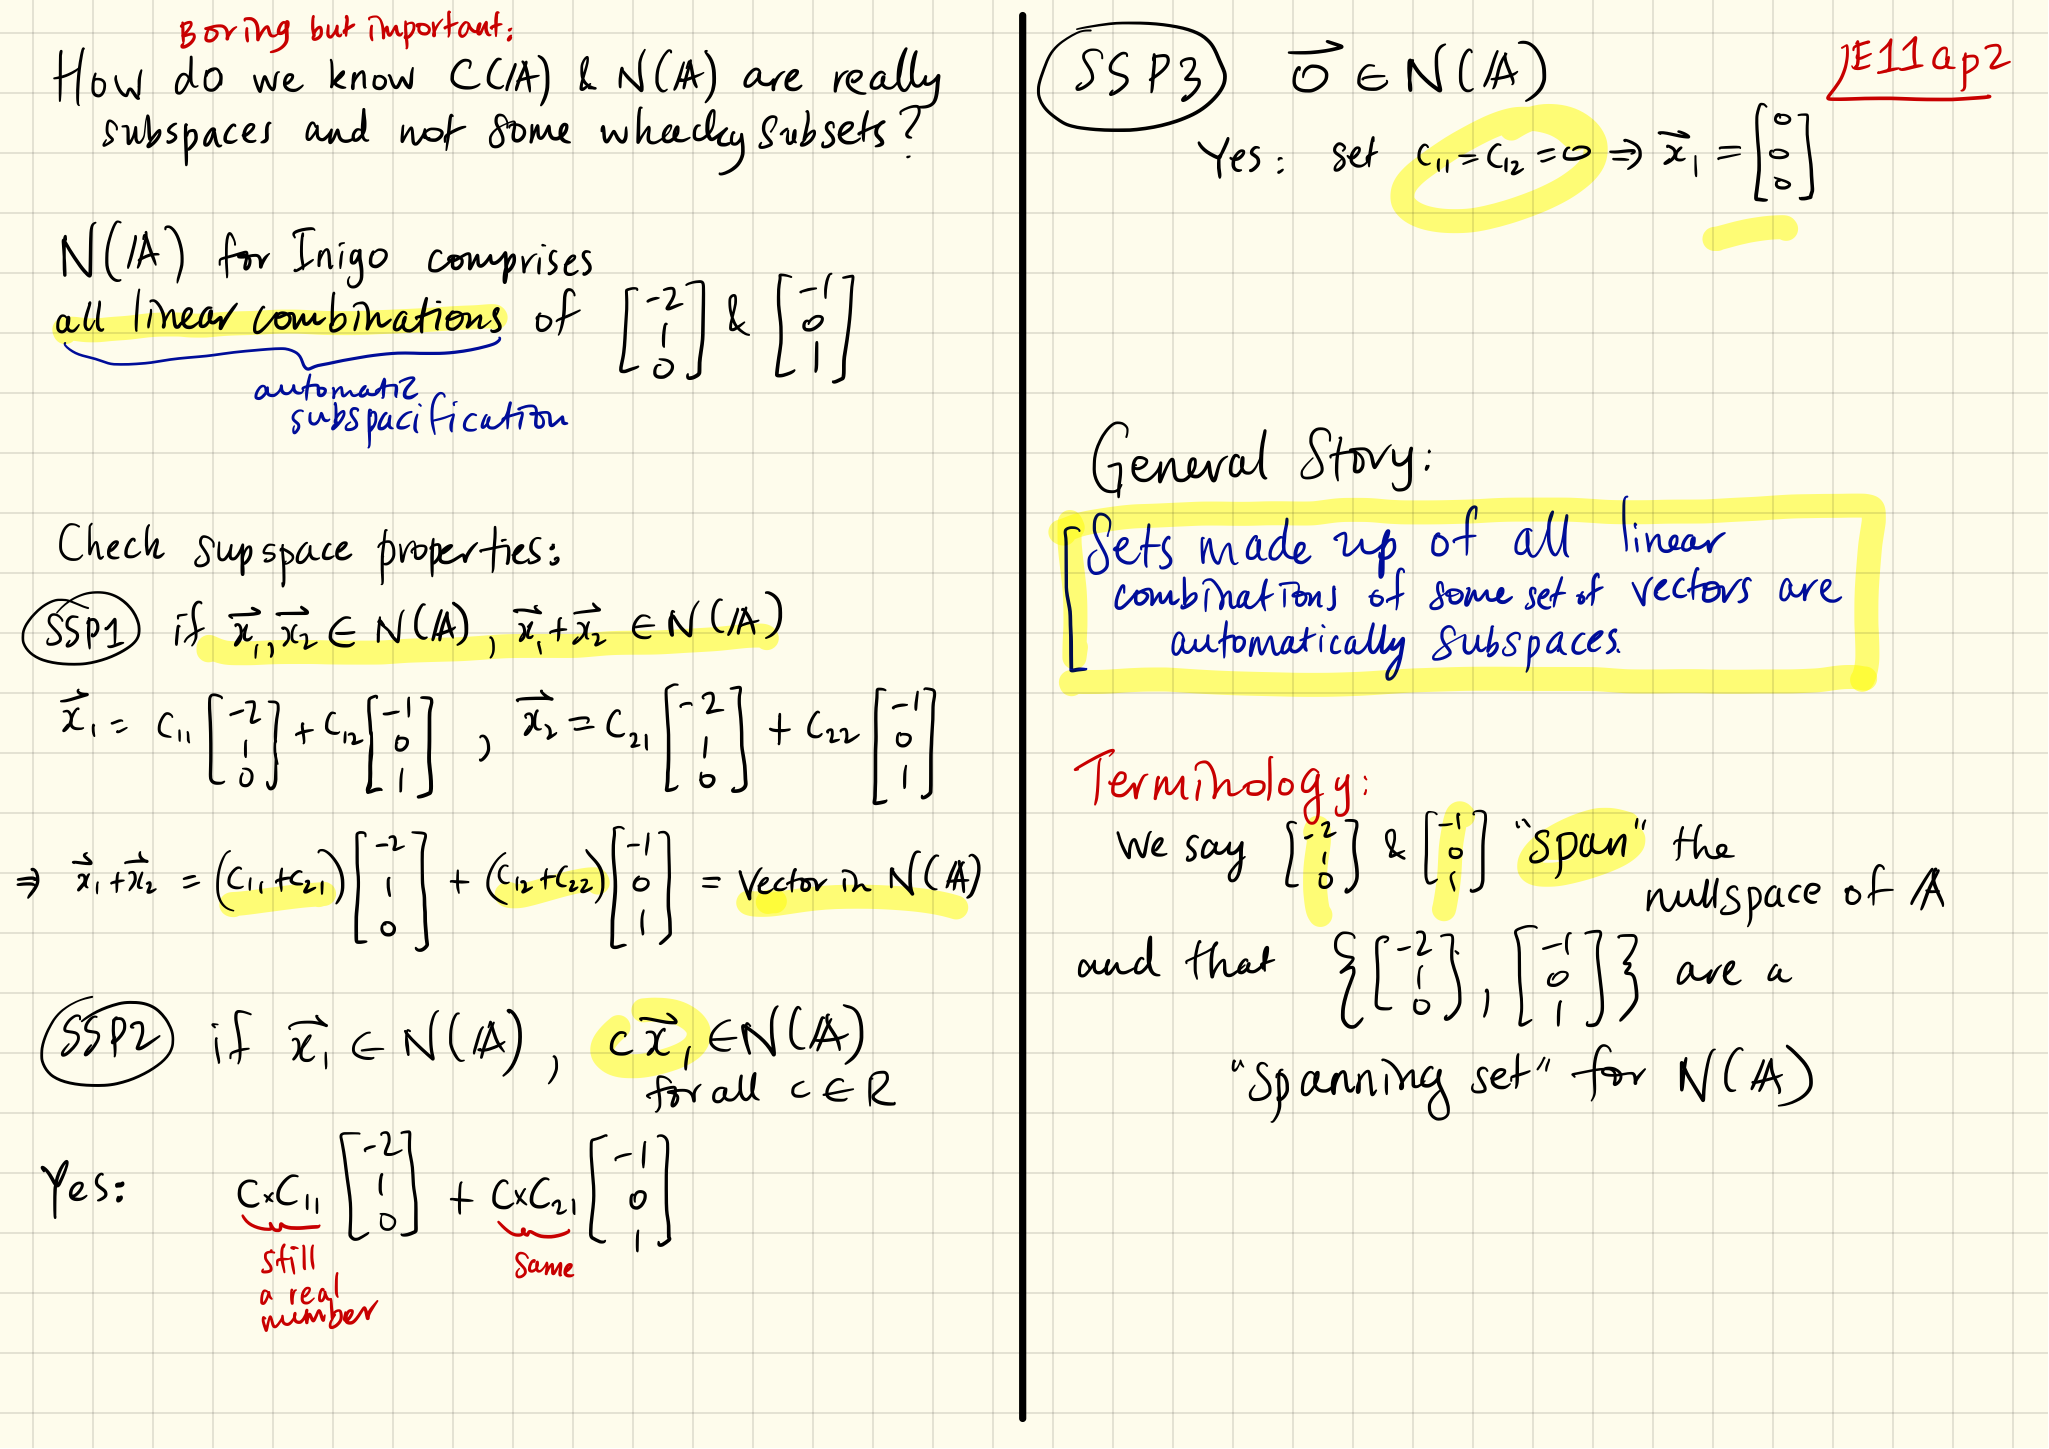 Boring but important:
How do we know C(A) & N(A) are really
subspaces and not some whacky subsets?
N(A) for Inigo comprises
all linear combinations of [-2 1 0] & [-1 0 1]
automatic
subspacification
Check supspace properties:
SSP1 if x⃗₁, x⃗₂ ∈ N(A), x⃗₁ + x⃗₂ ∈ N(A)
x⃗₁ = c₁₁ [-2 1 0] + c₁₂ [-1 0 1] , x⃗₂ = c₂₁ [-2 1 0] + c₂₂ [-1 0 1]
⇒ x⃗₁ + x⃗₂ = (c₁₁ + c₂₁) [-2 1 0] + (c₁₂ + c₂₂) [-1 0 1] = vector in N(A)
SSP2 if x⃗₁ ∈ N(A), c x⃗₁ ∈ N(A)
for all c ∈ R
Yes: c×c₁₁ [-2 1 0] + c×c₂₁ [-1 0 1]
still
a real
number
same
SSP3 0⃗ ∈ N(A)
E11ap2
Yes: set c₁₁ = c₁₂ = 0 ⇒ x⃗₁ = [0 0 0]
General Story:
Sets made up of all linear
combinations of some set of vectors are
automatically subspaces.
Terminology:
We say [-2 1 0] & [-1 0 1] "span" the
nullspace of A
and that {[-2 1 0], [-1 0 1]} are a
"spanning set" for N(A)